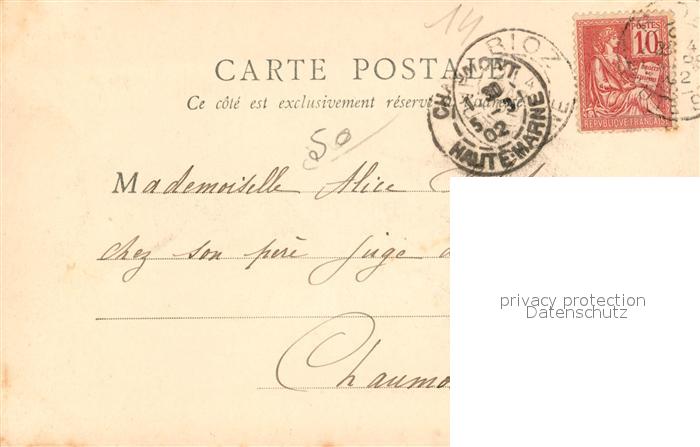 14
CARTE POSTALE
Ce côté est exclusivement réservé à l'adresse
50
BIOZ
CHAUMONT
02
HAUTE-MARNE
POSTES
10
REPUBLIQUE FRANÇAISE
Mademoiselle Alice
chez son père juge
Chaumo
privacy protection
Datenschutz